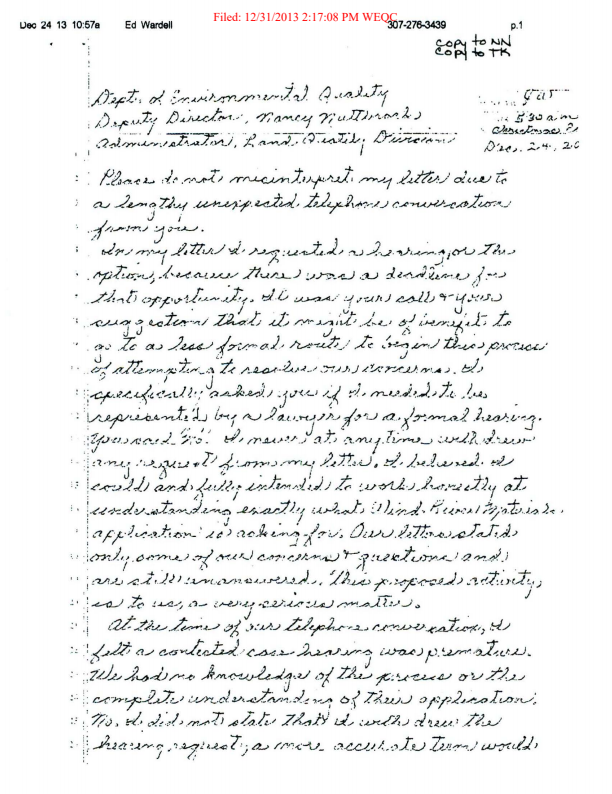 Filed: 12/31/2013 2:17:08 PM WEQC
Dec 24 13 10:57a Ed Wardell 307-276-3439 p.1
copy to NN
copy to TK
Dept. of Environmental Quality
Deputy Director, Nancy Nuttbrock
Administrator, Land Quality Division
8:30 am
Dec. 24, 20
Please do not misinterpret my letter due to
a lengthy unexpected telephone conversation
from you.
In my letter I requested a hearing, or the
option, because there was a deadline for
that opportunity. It was your call & your
suggestion that it might be of benefit to
go to a less formal route to begin this process
of attempting to resolve our concerns. I
specifically asked you if I needed to be
represented by a lawyer for a formal hearing.
You said "no". I never at any time with drew
any request from my letter. I believed I
could and fully intended to work honestly at
understanding exactly what Wind River
application is asking for. Our letter stated
only some of our concerns & questions and
are still unanswered. This proposed activity,
is to us, a very serious matter.
At the time of our telephone conversation, I
felt a contested case hearing was premature.
We had no knowledge of the process or the
complete understanding of their application.
No, I did not state that I with drew the
hearing request; a more accurate term would